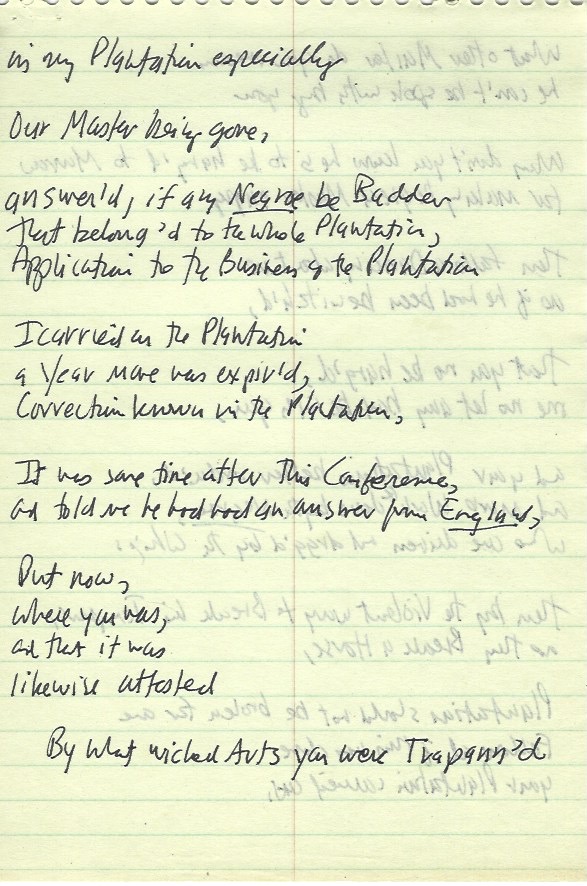 in my Plantation especially
Our Master being gone,
answer'd, if any Negroe be Badder
that belong'd to the whole Plantation,
Application to the Business of the Plantation
I carried on the Plantation
a Year more was expir'd,
Correction known in the Plantation,
It was some time after this Conference,
and told me he had had an answer from England,
But now,
where you was,
and that it was
likewise attested
By what wicked Arts you were Trapann'd